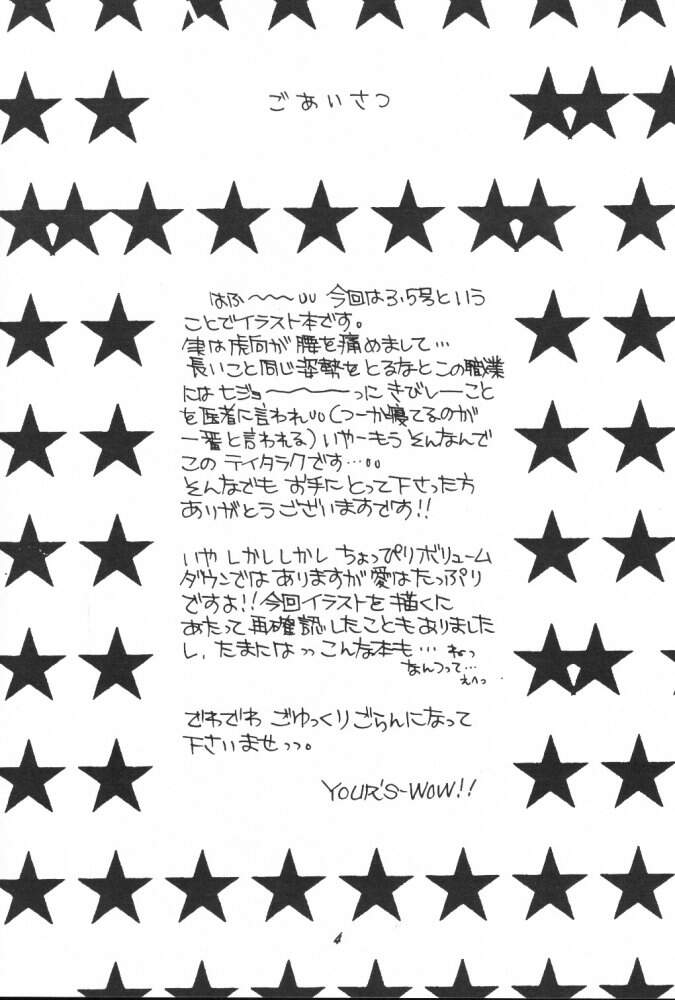 ごあいさつ
はふ〜〜〜 今回は3.5号という
ことでイラスト本です。
実は虎向が腰を痛めまして…
長いこと同じ姿勢をとるなとこの職業
には七ジョー〜〜〜〜っにきびしーこと
を医者に言われ(つーか寝てるのが
一番と言われる)いやーもうそんなんで
このテイタラクです…
そんなでも お手にとって下さった方
ありがとうございますです!!
いやしかししかし ちょっぴりボリューム
ダウンでは ありますが愛はたっぷり
ですよ!!今回イラストを描くに
あたって再確認したこともありました
し、たまにはっっこんな本も… ねっ
なんつって…
えへっ
でわでわ ごゆっくりごらんになって
下さいませっっ。
YOUR'S-WOW!!
4